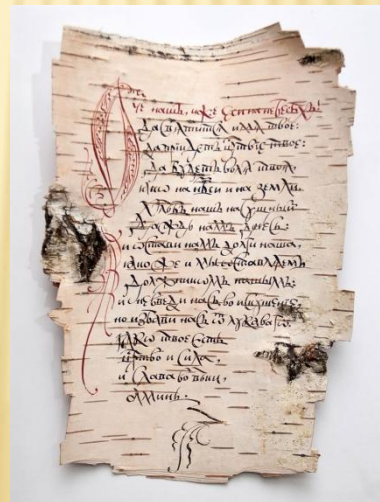 Отче нашъ, иже Еси на нбсѣхъ!
Да святится имя твое:
Да приидетъ црьствие твое:
Да будетъ воля твоя,
яко на нбси и на земли.
Хлѣбъ нашъ насущный
Даждь намъ днесь
и остави намъ долги наша,
якоже и мы оставляемъ
Должникомъ нашымъ:
и не введи насъ во искушение,
но избави насъ ѿ лукаваго
Яко твое есть
црство и сила,
и слава во веки,
аминь.